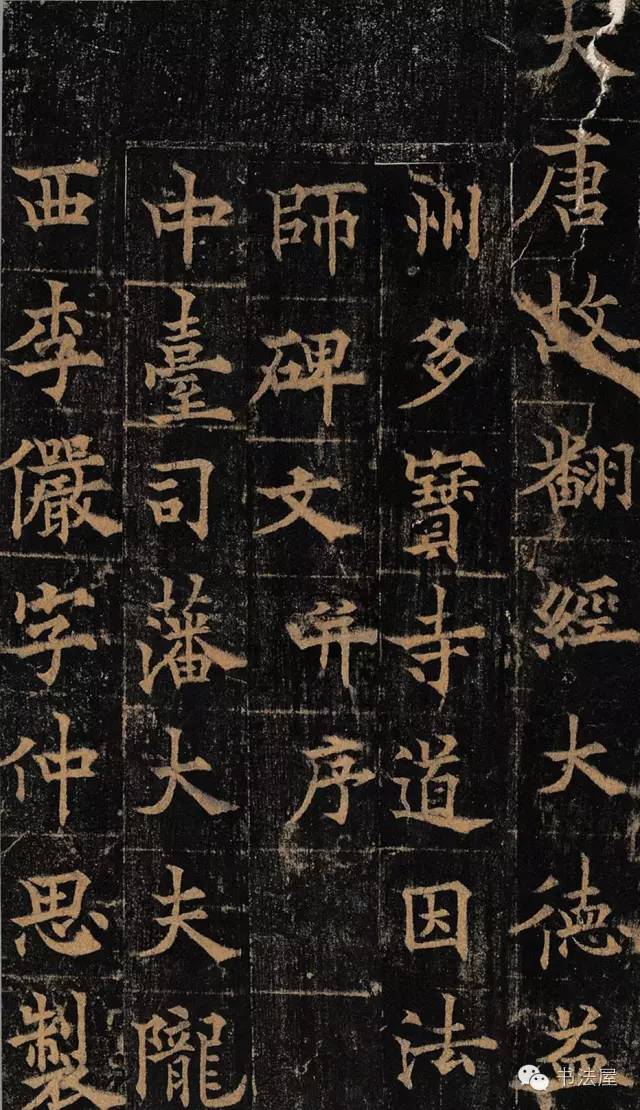 大唐故翻經大德益
州多寶寺道因法
師碑文并序
中臺司藩大夫隴
西李儼字仲思製
书法屋